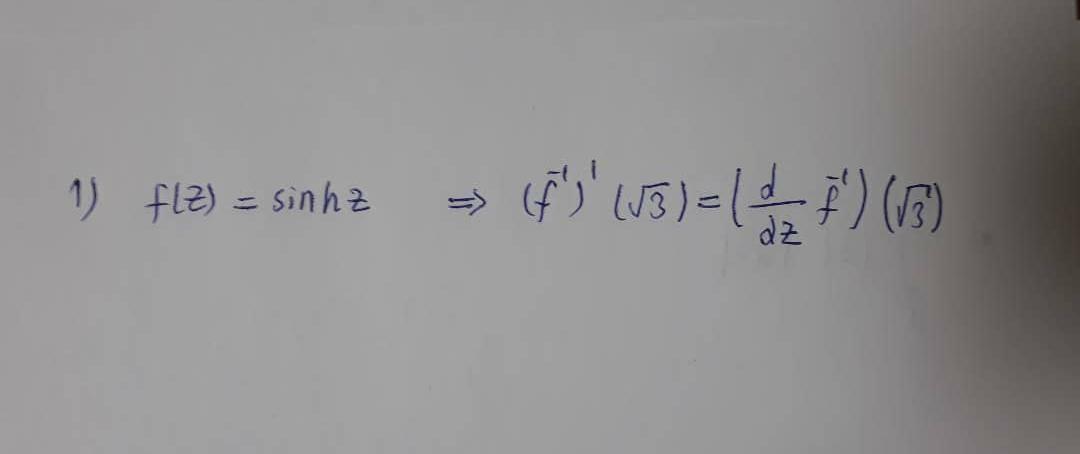 1) f(z) = sinh z ⇒ (f⁻¹)' (√3) = (d/dz f⁻¹) (√3)